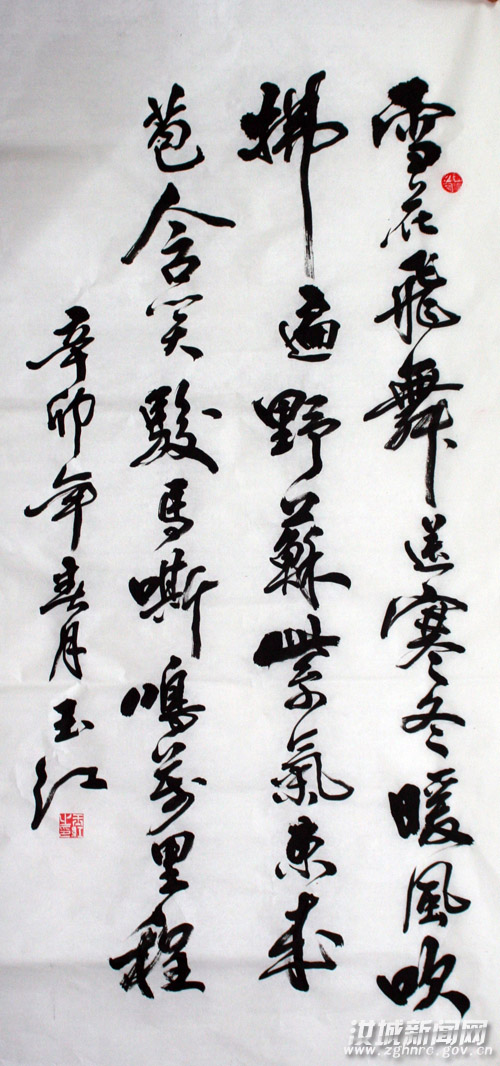 雪花飛舞送寒冬暖風吹
拂遍野蘇紫氣東來
苞含笑駿馬嘶鳴萬里程
辛卯年春月玉江
洪城新闻网
www.zghnrc.gov.cn